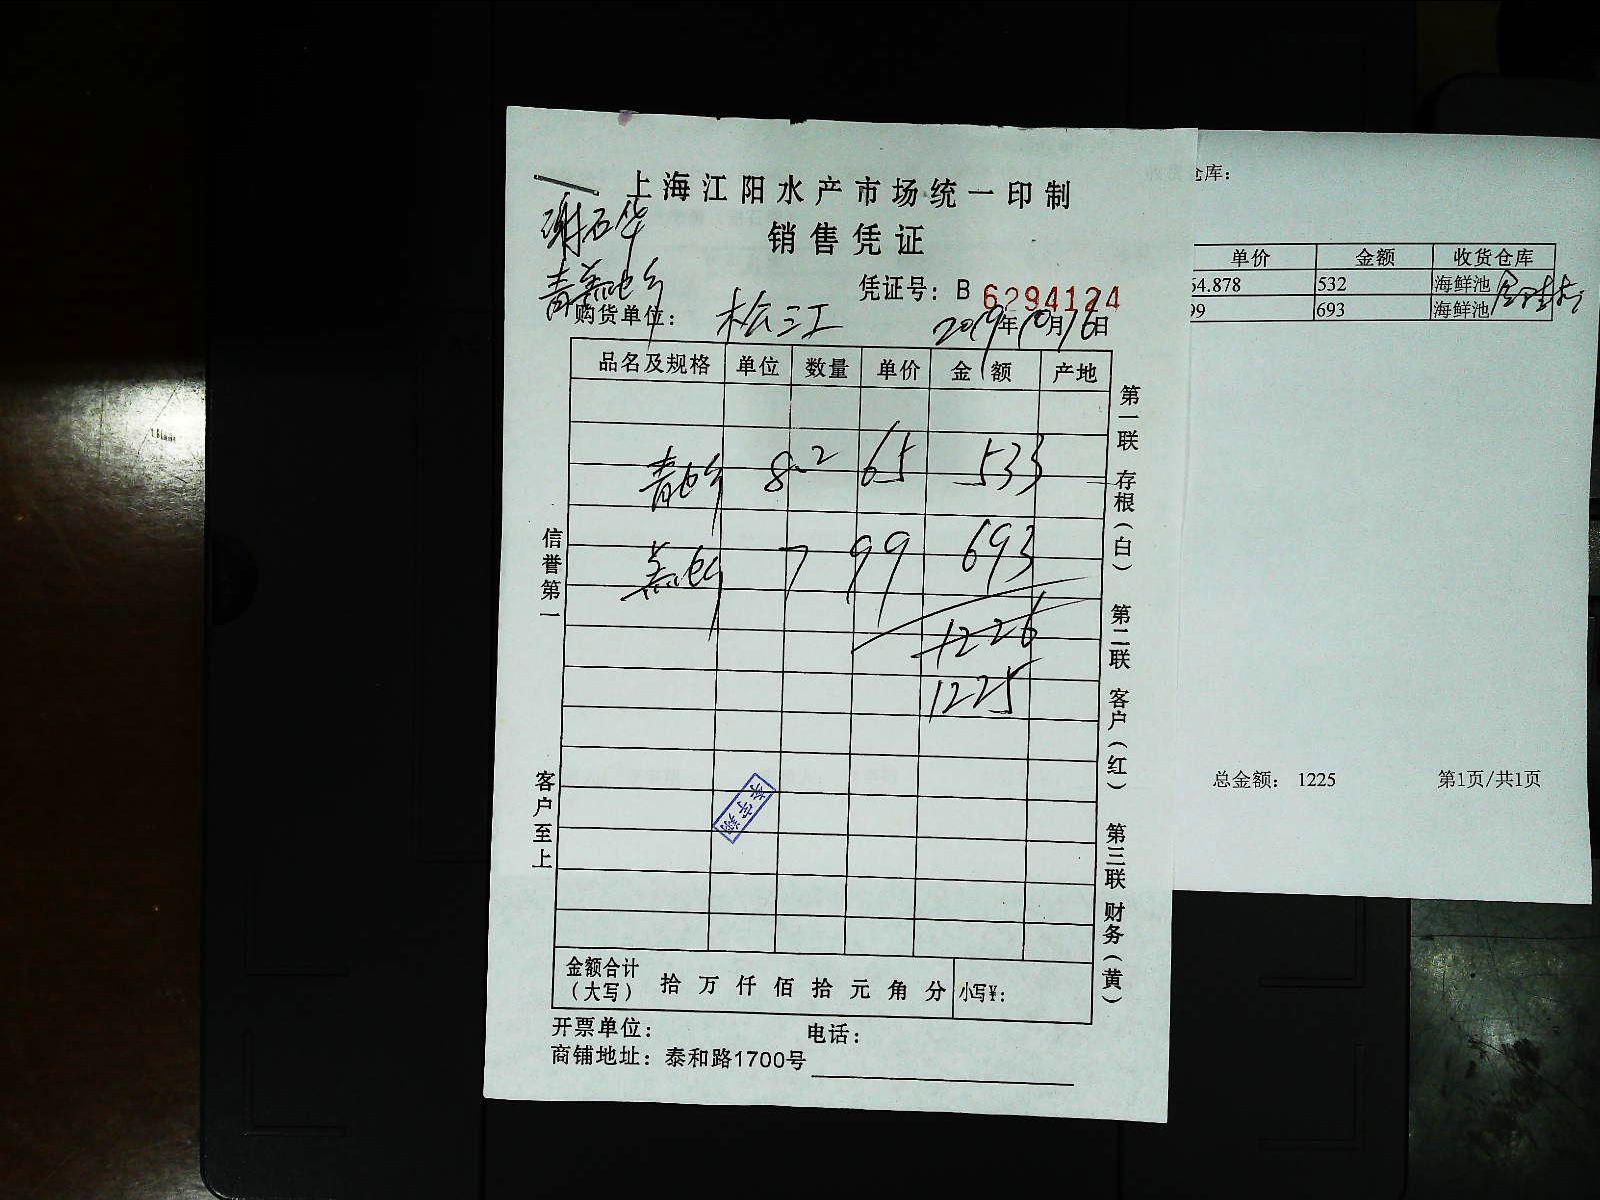 上海江阳水产市场统一印制
销售凭证
谢石华
凭证号：B 6294124
购货单位：松江 2019年10月16日
品名及规格 单位 数量 单价 金额 产地
8.2 65 533
7 99 693
1226
1225
信誉第一
客户至上
第一联 存根（白） 第二联 客户（红） 第三联 财务（黄）
金额合计（大写） 拾 万 仟 佰 拾 元 角 分 小写¥：
开票单位： 电话：
商铺地址：泰和路1700号
仓库：
单价 金额 收货仓库
64.878 532 海鲜池
99 693 海鲜池
总金额： 1225 第1页/共1页